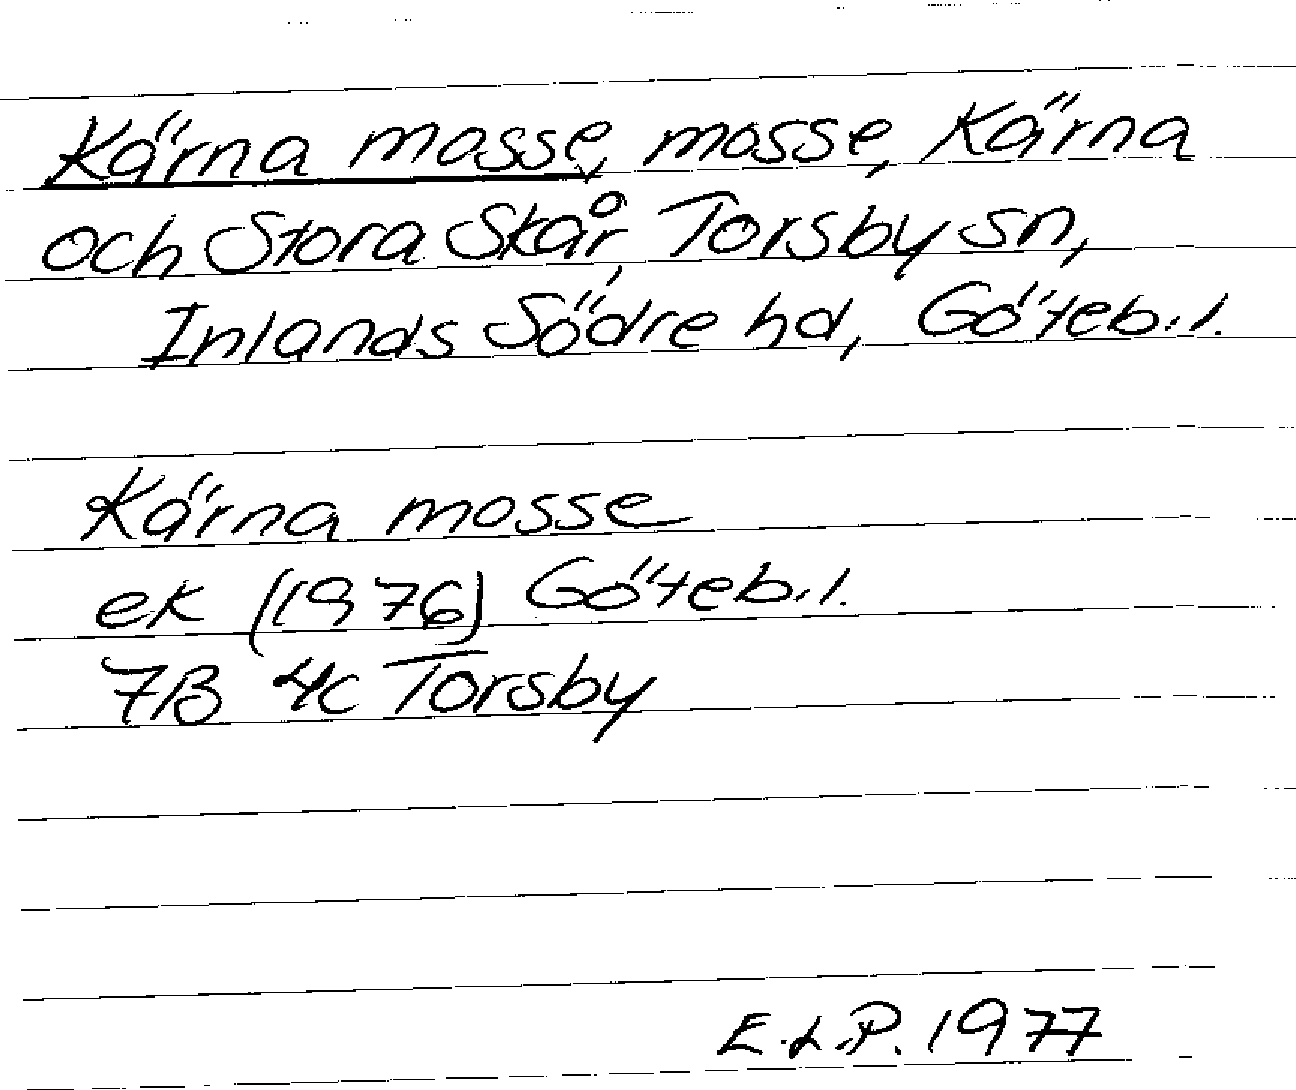 Kärna mosse, mosse, Kärna
och Stora Skår, Torsby sn,
Inlands Södre hd, Göteb.l.
Kärna mosse
ek (1976) Göteb.l.
7B 4c Torsby
E.L.P. 1977